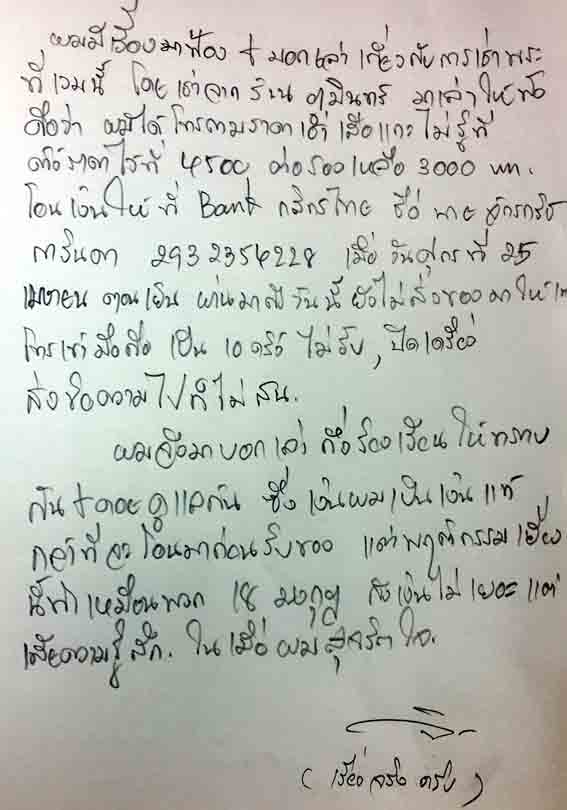 ผมมีเรื่องมาฟ้อง + บอกเล่า เกี่ยวกับการเช่าพระ
ที่เวบนี้ โดยเช่าจาก ร้าน ภูมินทร์ มาเล่าให้ฟัง
คือว่า ผมได้โทรถามราคาเช่า เสือแกะ ไม่รู้ที่
ตั้งราคาไว้ที่ 4500 ต่อรองเหลือ 3000 บาท.
โอนเงินให้ที่ Bank กสิกรไทย ชื่อ นาย จักรกริช
การินตา 2932354228 เมื่อ วันศุกร์ที่ 25
เมษายน ตอนเย็น ผ่านมาถึงวันนี้ ยังไม่ส่งของมาให้
โทรเข้ามือถือ เป็น 10 ครั้ง ไม่รับ, ปิดเครื่อง
ส่งข้อความไปก็ไม่สน.
ผมจึงมาบอกเล่า ถึงร้องเรียนให้ทราบ
กัน + คอยดูแลกัน ซึ่ง เงินผมเป็นเงินแท้
กล้าที่จะโอนมาก่อนรับของ แต่พฤติกรรมเยี่ยง
นี้ทำเหมือนพวก 18 มงกุฎ ถึงเงินไม่เยอะแต่
เสียความรู้สึก. ในเมื่อผมสุจริตใจ.
( เรื่องจริงครับ )